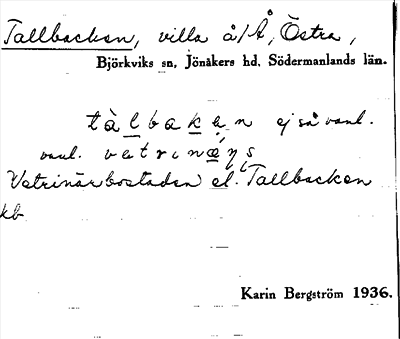 Tallbacken, villa å/Å, Östra,
Björkviks sn, Jönåkers hd, Södermanlands län.
tàlbakan ej så vanl.
vanl. vetrinǽŋs
Vetrinärbostaden el. Tallbacken
kb
Karin Bergström 1936.